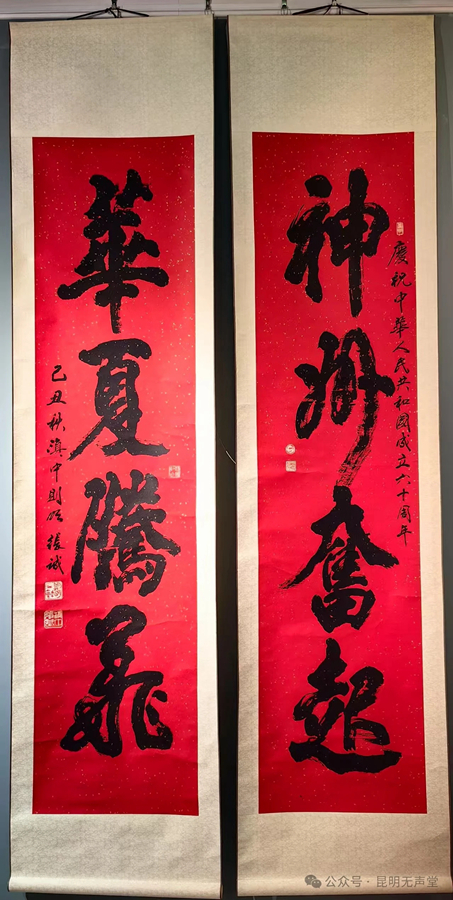 慶祝中華人民共和國成立六十周年
神州奮起
華夏騰飛
己丑秋滇中則
公众号·昆明无声堂